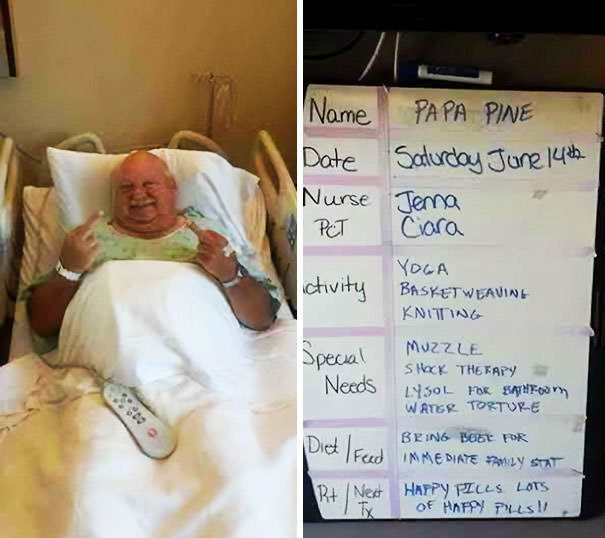 Name PAPA PINE
Date Saturday June 14th
Nurse Jenna
PCT Ciara
YOGA
ctivity BASKETWEAVING
KNITTING
Special MUZZLE
Needs SHOCK THERAPY
LYSOL FOR BATHROOM
WATER TORTURE
Diet/Feed BRING BEER FOR
IMMEDIATE FAMILY STAT
Rt/Next HAPPY PILLS LOTS
Tx OF HAPPY PILLS!!